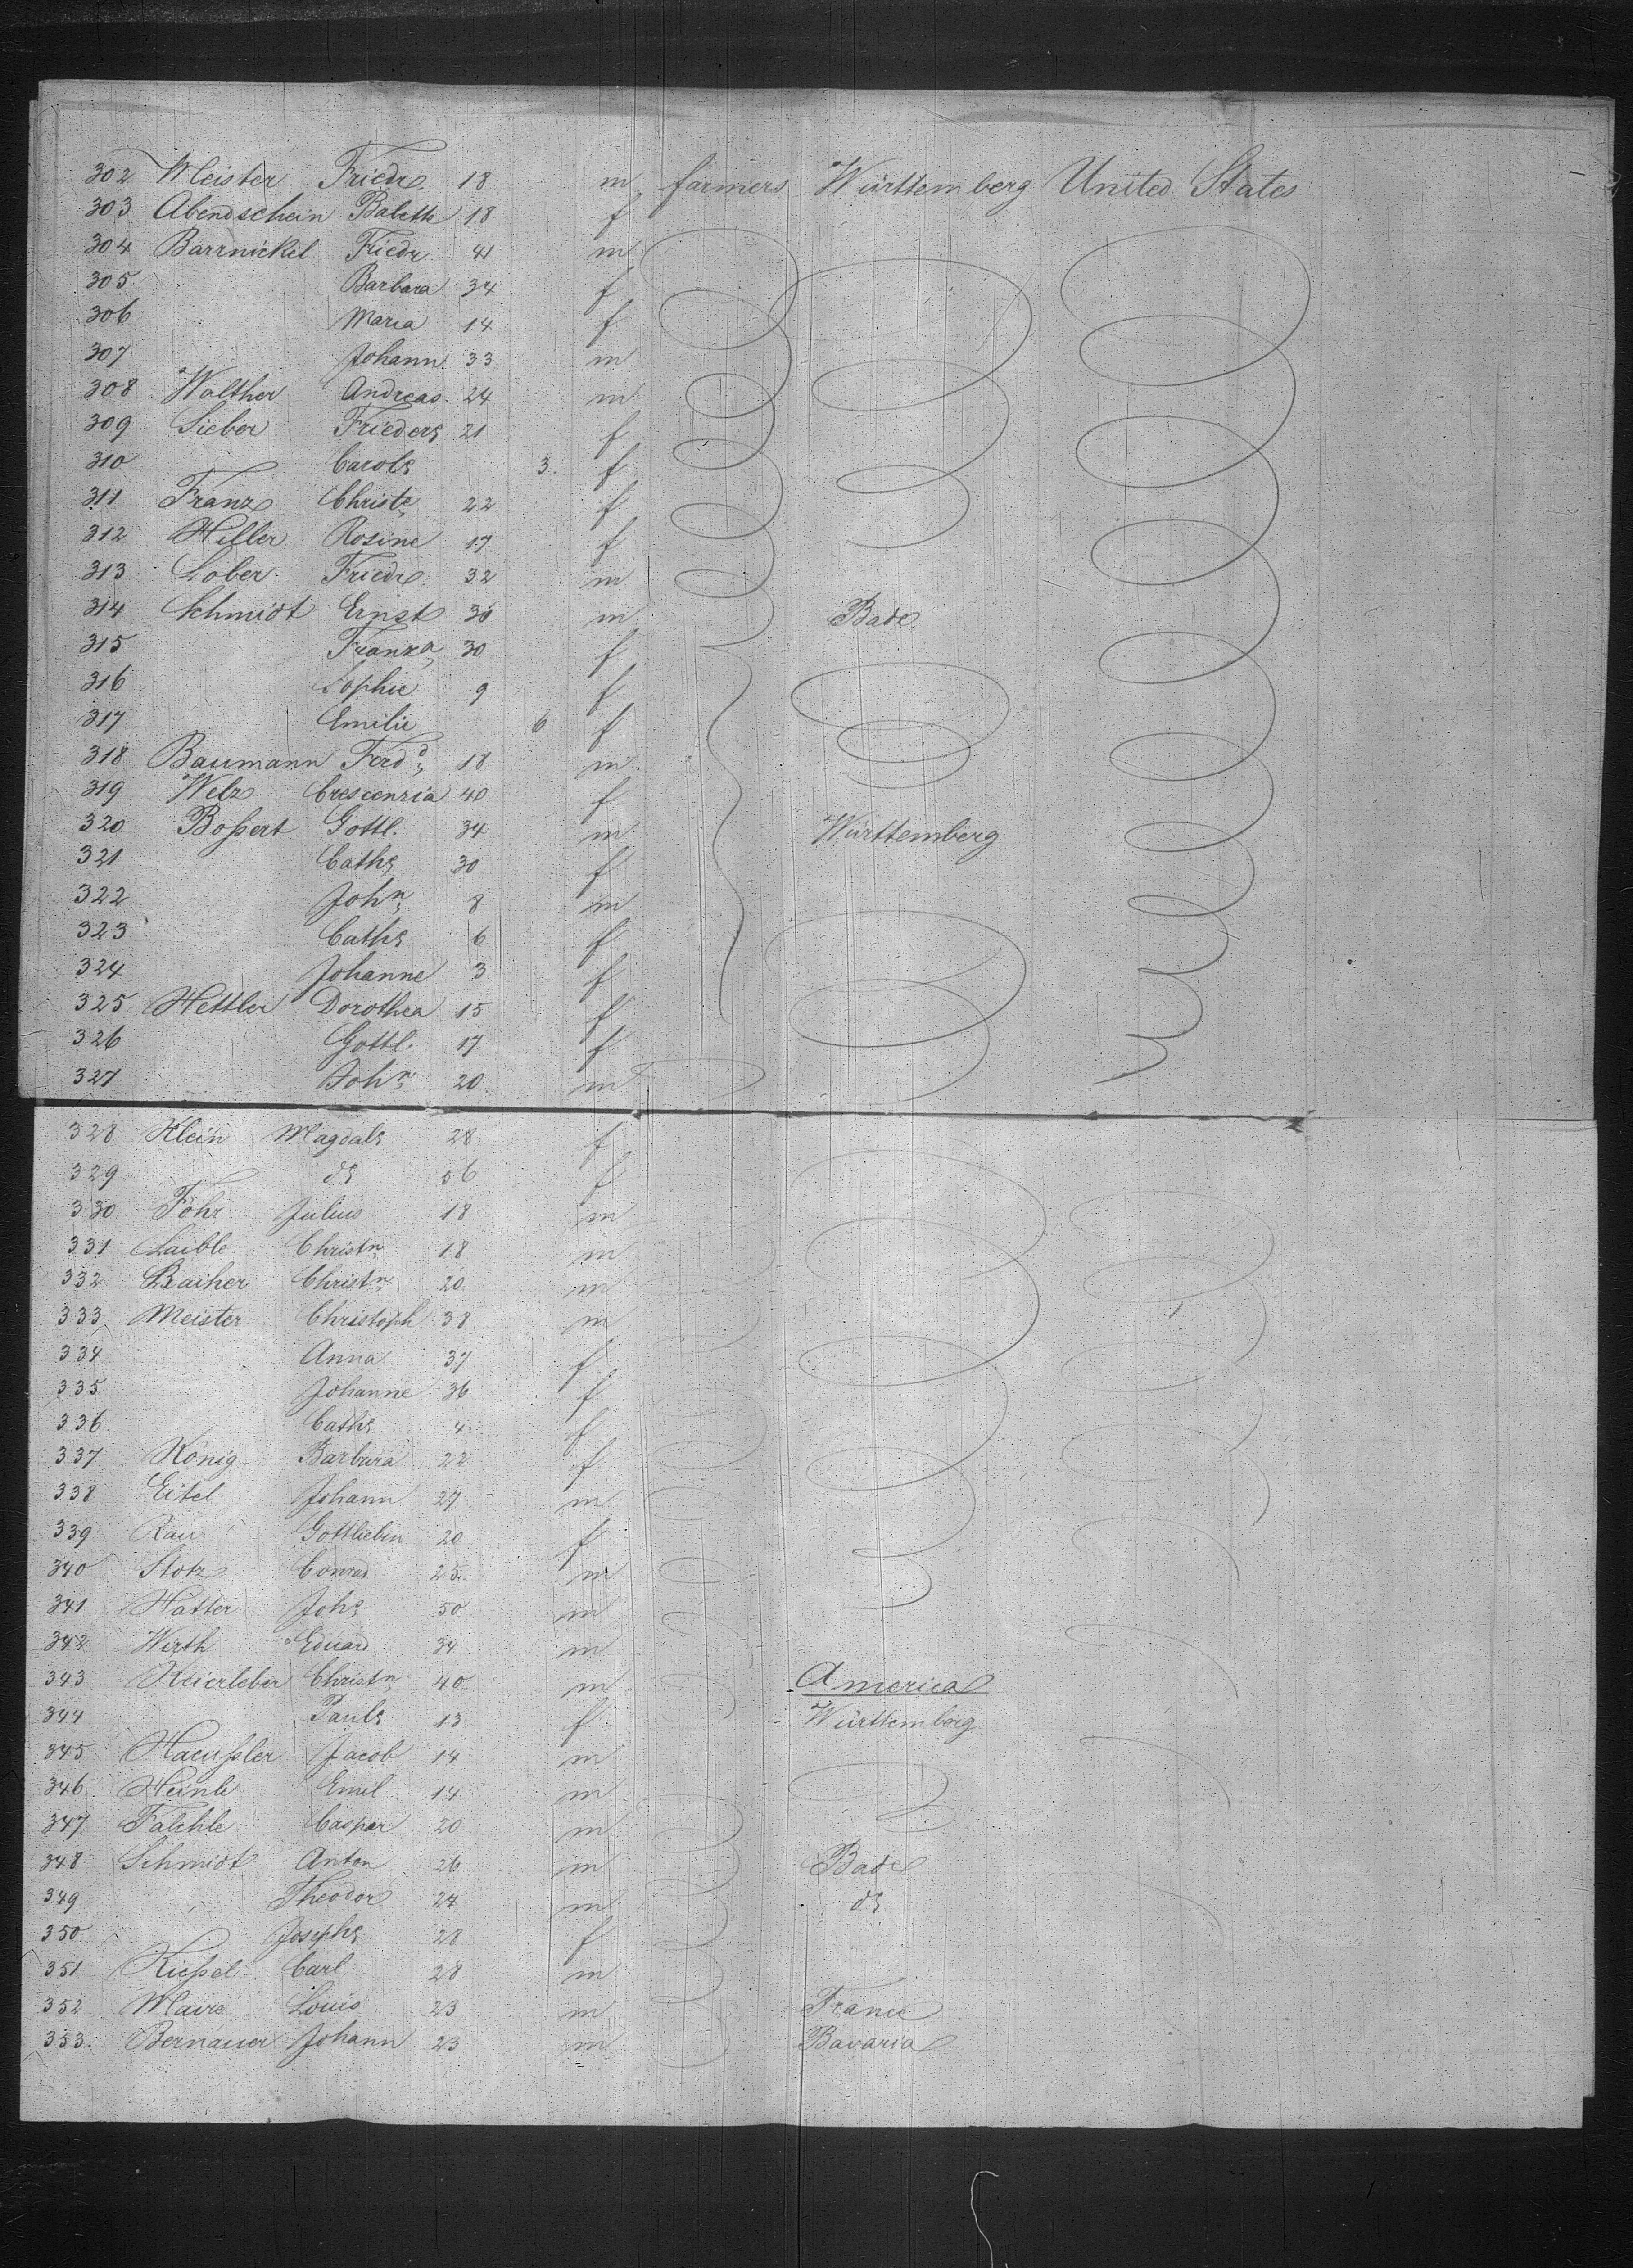 302 Meister Friedr. 18 m farmers Württemberg United States
303 Abendschein Babeth 18 f
304 Barrnickel Friedr 41 m
305 Barbara 34 f
306 Maria 14 f
307 Johann. 33 m
308 Walther Andreas. 24 m
309 Sieber Frieders 21 f
310 Carols 3. f
311 Franz Christe 22 f
312 Hiller Rosine 17 f
313 Lober. Friedr. 32 m
314 Schmidt Ernst 30 m Bade
315 Franza 30 f
316 Sophie 9 f
317 Emilie 6 f
318 Baumann Ferdd 18 m
319 Welz Crescenzia 40 f
320 Boßert Gottl. 34 m Württemberg
321 Caths 30 f
322 John 8 m
323 Caths 6 f
324 Johanne 3 f
325 Hettler Dorothea 15 f
326 Gottl. 17 f
327 John 20 m
328 Klein Magdals 28 f
329 ds 56 f
330 Föhr Julius 18 m
331 Laible Christn 18 m
332 Christn 20 m
333. Meister Christoph 38 m
334 Anna 37 f
335 Johanne 36 f
336. Caths 4 f
337 König Barbara 22 f
338 Eitel Johann 27 m
339 Rau Gottliebin 20 f
340 Stotz Conrad 25. m
341 Hatter Johs 50 m
342 Wirth Eduard 34 m
343 Christn 40 m America
344 Pauls 13 f Württemberg
345 Haeußler Jacob 14 m
346. Heinle Emil 14 m
347 Caspar 20 m
348 Schmidt Anton 26 m Bade
349 Theodor 24 m ds
350 Josephs 28 f
351 Kießel Carl 28 m
352 Maire Louis 23 m France
353. Bernauer Johann 23 m Bavaria